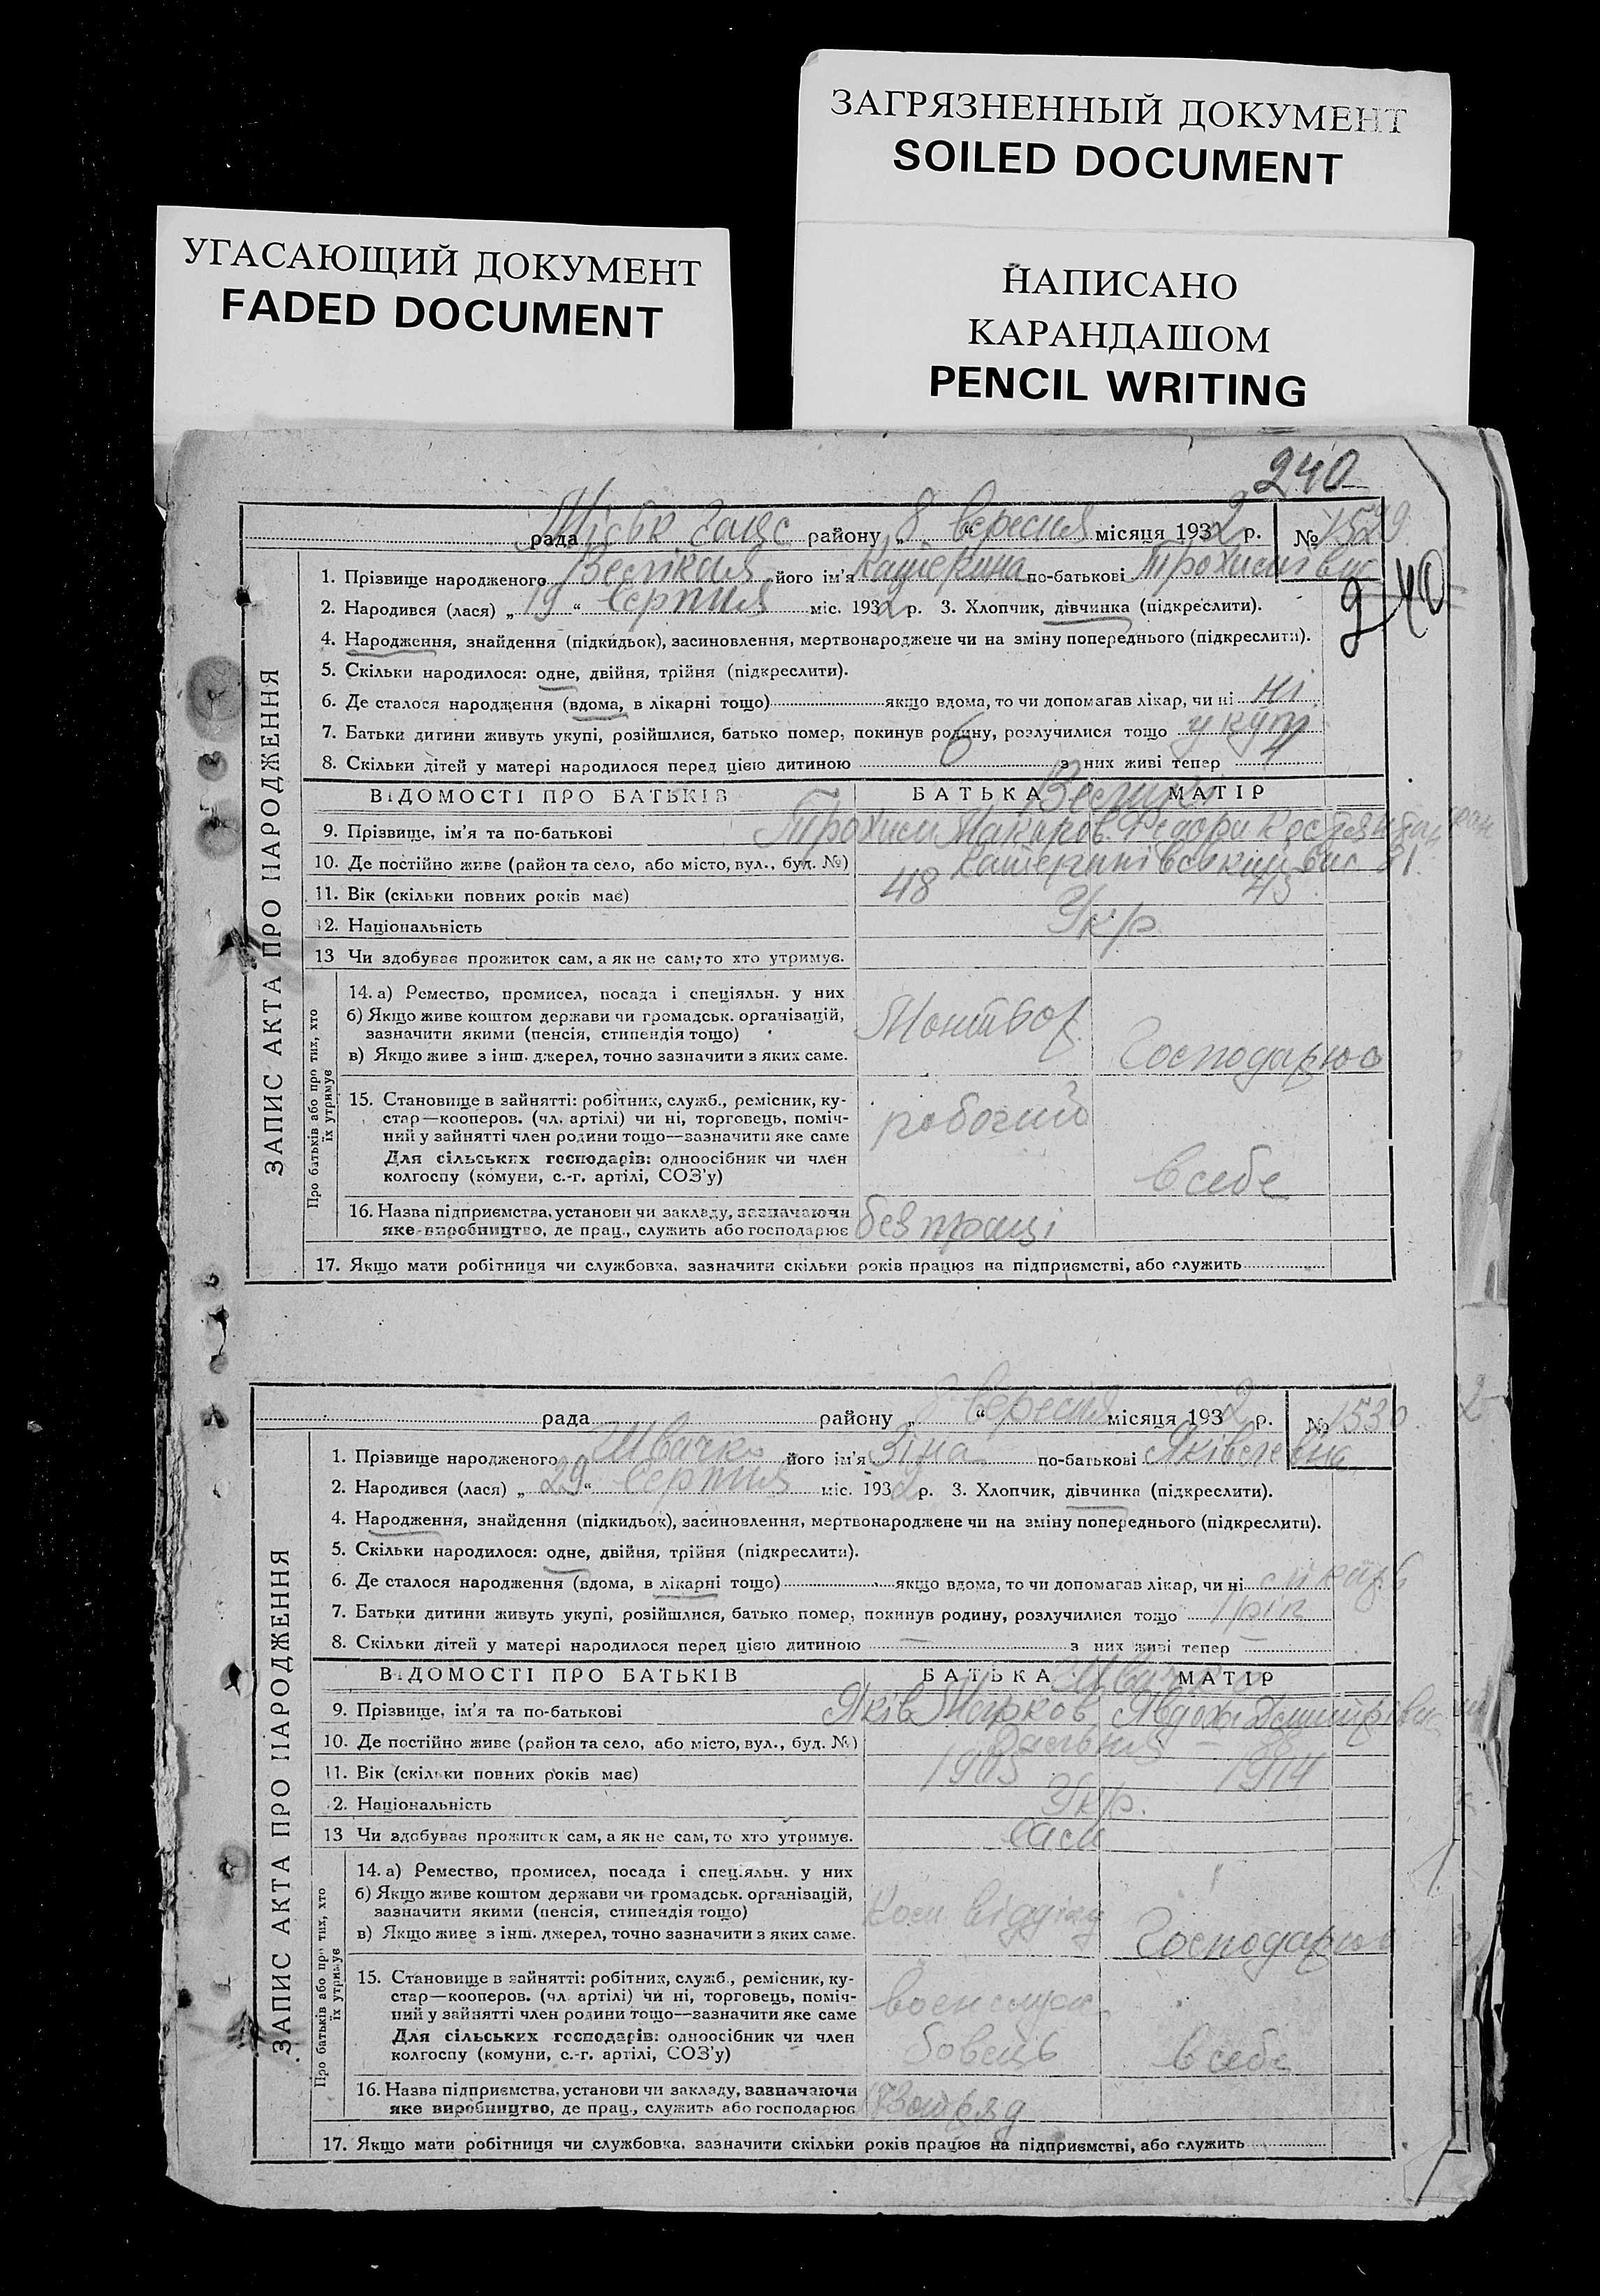 ЗАГРЯЗНЕННЫЙ ДОКУМЕНТ
SOILED DOCUMENT
УГАСАЮЩИЙ ДОКУМЕНТ
FADED DOCUMENT
НАПИСАНО
КАРАНДАШОМ
PENCIL WRITING
240
рада району „ 8 “ вересня місяця 1932 р. № 1529
240
ЗАПИС АКТА ПРО НАРОДЖЕННЯ
1. Прізвище народженого його ім'я Катерина по-батькові
2. Народився (лася) „ 19 “ серпня міс. 1932 р. 3. Хлопчик, дівчинка (підкреслити).
4. Народження, знайдення (підкидьок), засиновлення, мертвонароджене чи на зміну попереднього (підкреслити).
5. Скільки народилося: одне, двійня, трійня (підкреслити).
6. Де сталося народження (вдома, в лікарні тощо) якщо вдома, то чи допомагав лікар, чи ні ні
7. Батьки дитини живуть укупі, розійшлися, батько помер, покинув родину, розлучилися тощо укупі
8. Скільки дітей у матері народилося перед цією дитиною 6 з них живі тепер 4
ВІДОМОСТІ ПРО БАТЬКІВ БАТЬКА МАТІР
9. Прізвище, ім'я та по-батькові Макаров.
10. Де постійно живе (район та село, або місто, вул., буд. №) 81
11. Вік (скільки повних років має) 48 45
12. Національність Укр
13 Чи здобуває прожиток сам, а як не сам, то хто утримує.
Про батьків або про тих, хто їх утримує
14. а) Ремество, промисел, посада і спеціяльн. у них
б) Якщо живе коштом держави чи громадськ. організацій,
зазначити якими (пенсія, стипендія тощо)
в) Якщо живе з інш. джерел, точно зазначити з яких саме.
15. Становище в зайнятті: робітник, служб., ремісник, ку-
стар—кооперов. (чл. артілі) чи ні, торговець, поміч- робочий
ний у зайнятті член родини тощо—зазначити яке саме
Для сільських господарів: одноосібник чи член
колгоспу (комуни, с.-г. артілі, СОЗ'у) в себе
16. Назва підприємства, установи чи закладу, зазначаючи без праці
яке виробництво, де прац., служить або господарює
17. Якщо мати робітниця чи службовка, зазначити скільки років працює на підприємстві, або служить
рада району „ 8 “ вересня місяця 1932 р. № 1530
ЗАПИС АКТА ПРО НАРОДЖЕННЯ
1. Прізвище народженого Швачко його ім'я Зіна по-батькові
2. Народився (лася) „ 29 “ серпня міс. 1932 р. 3. Хлопчик, дівчинка (підкреслити).
4. Народження, знайдення (підкидьок), засиновлення, мертвонароджене чи на зміну попереднього (підкреслити).
5. Скільки народилося: одне, двійня, трійня (підкреслити).
6. Де сталося народження (вдома, в лікарні тощо) якщо вдома, то чи допомагав лікар, чи ні
7. Батьки дитини живуть укупі, розійшлися, батько помер, покинув родину, розлучилися тощо 1 рік
8. Скільки дітей у матері народилося перед цією дитиною — з них живі тепер —
ВІДОМОСТІ ПРО БАТЬКІВ БАТЬКА МАТІР
9. Прізвище, ім'я та по-батькові Яків Марков
10. Де постійно живе (район та село, або місто, вул., буд. №)
11. Вік (скільки повних років має) 1905 1914
12. Національність Укр.
13 Чи здобуває прожиток сам, а як не сам, то хто утримує. сам
Про батьків або про тих, хто їх утримує
14. а) Ремество, промисел, посада і спеціяльн. у них
б) Якщо живе коштом держави чи громадськ. організацій,
зазначити якими (пенсія, стипендія тощо)
в) Якщо живе з інш. джерел, точно зазначити з яких саме.
15. Становище в зайнятті: робітник, служб., ремісник, ку-
стар—кооперов. (чл. артілі) чи ні, торговець, поміч-
ний у зайнятті член родини тощо—зазначити яке саме
Для сільських господарів: одноосібник чи член
колгоспу (комуни, с.-г. артілі, СОЗ'у) в себе
16. Назва підприємства, установи чи закладу, зазначаючи
яке виробництво, де прац., служить або господарює
17. Якщо мати робітниця чи службовка, зазначити скільки років працює на підприємстві, або служить